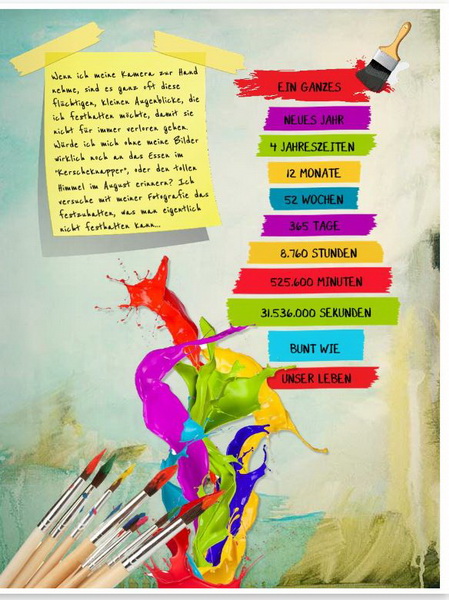 Wenn ich meine Kamera zur Hand
nehme, sind es ganz oft diese
flüchtigen, kleinen Augenblicke, die
ich festhalten möchte, damit sie
nicht für immer verloren gehen.
Würde ich mich ohne meine Bilder
wirklich noch an das Essen im
"Kerscheknapper", oder den tollen
Himmel im August erinnern? Ich
versuche mit meiner Fotografie das
festzuhalten, was man eigentlich
nicht festhalten kann...
EIN GANZES
NEUES JAHR
4 JAHRESZEITEN
12 MONATE
52 WOCHEN
365 TAGE
8.760 STUNDEN
525.600 MINUTEN
31.536.000 SEKUNDEN
BUNT WIE
UNSER LEBEN